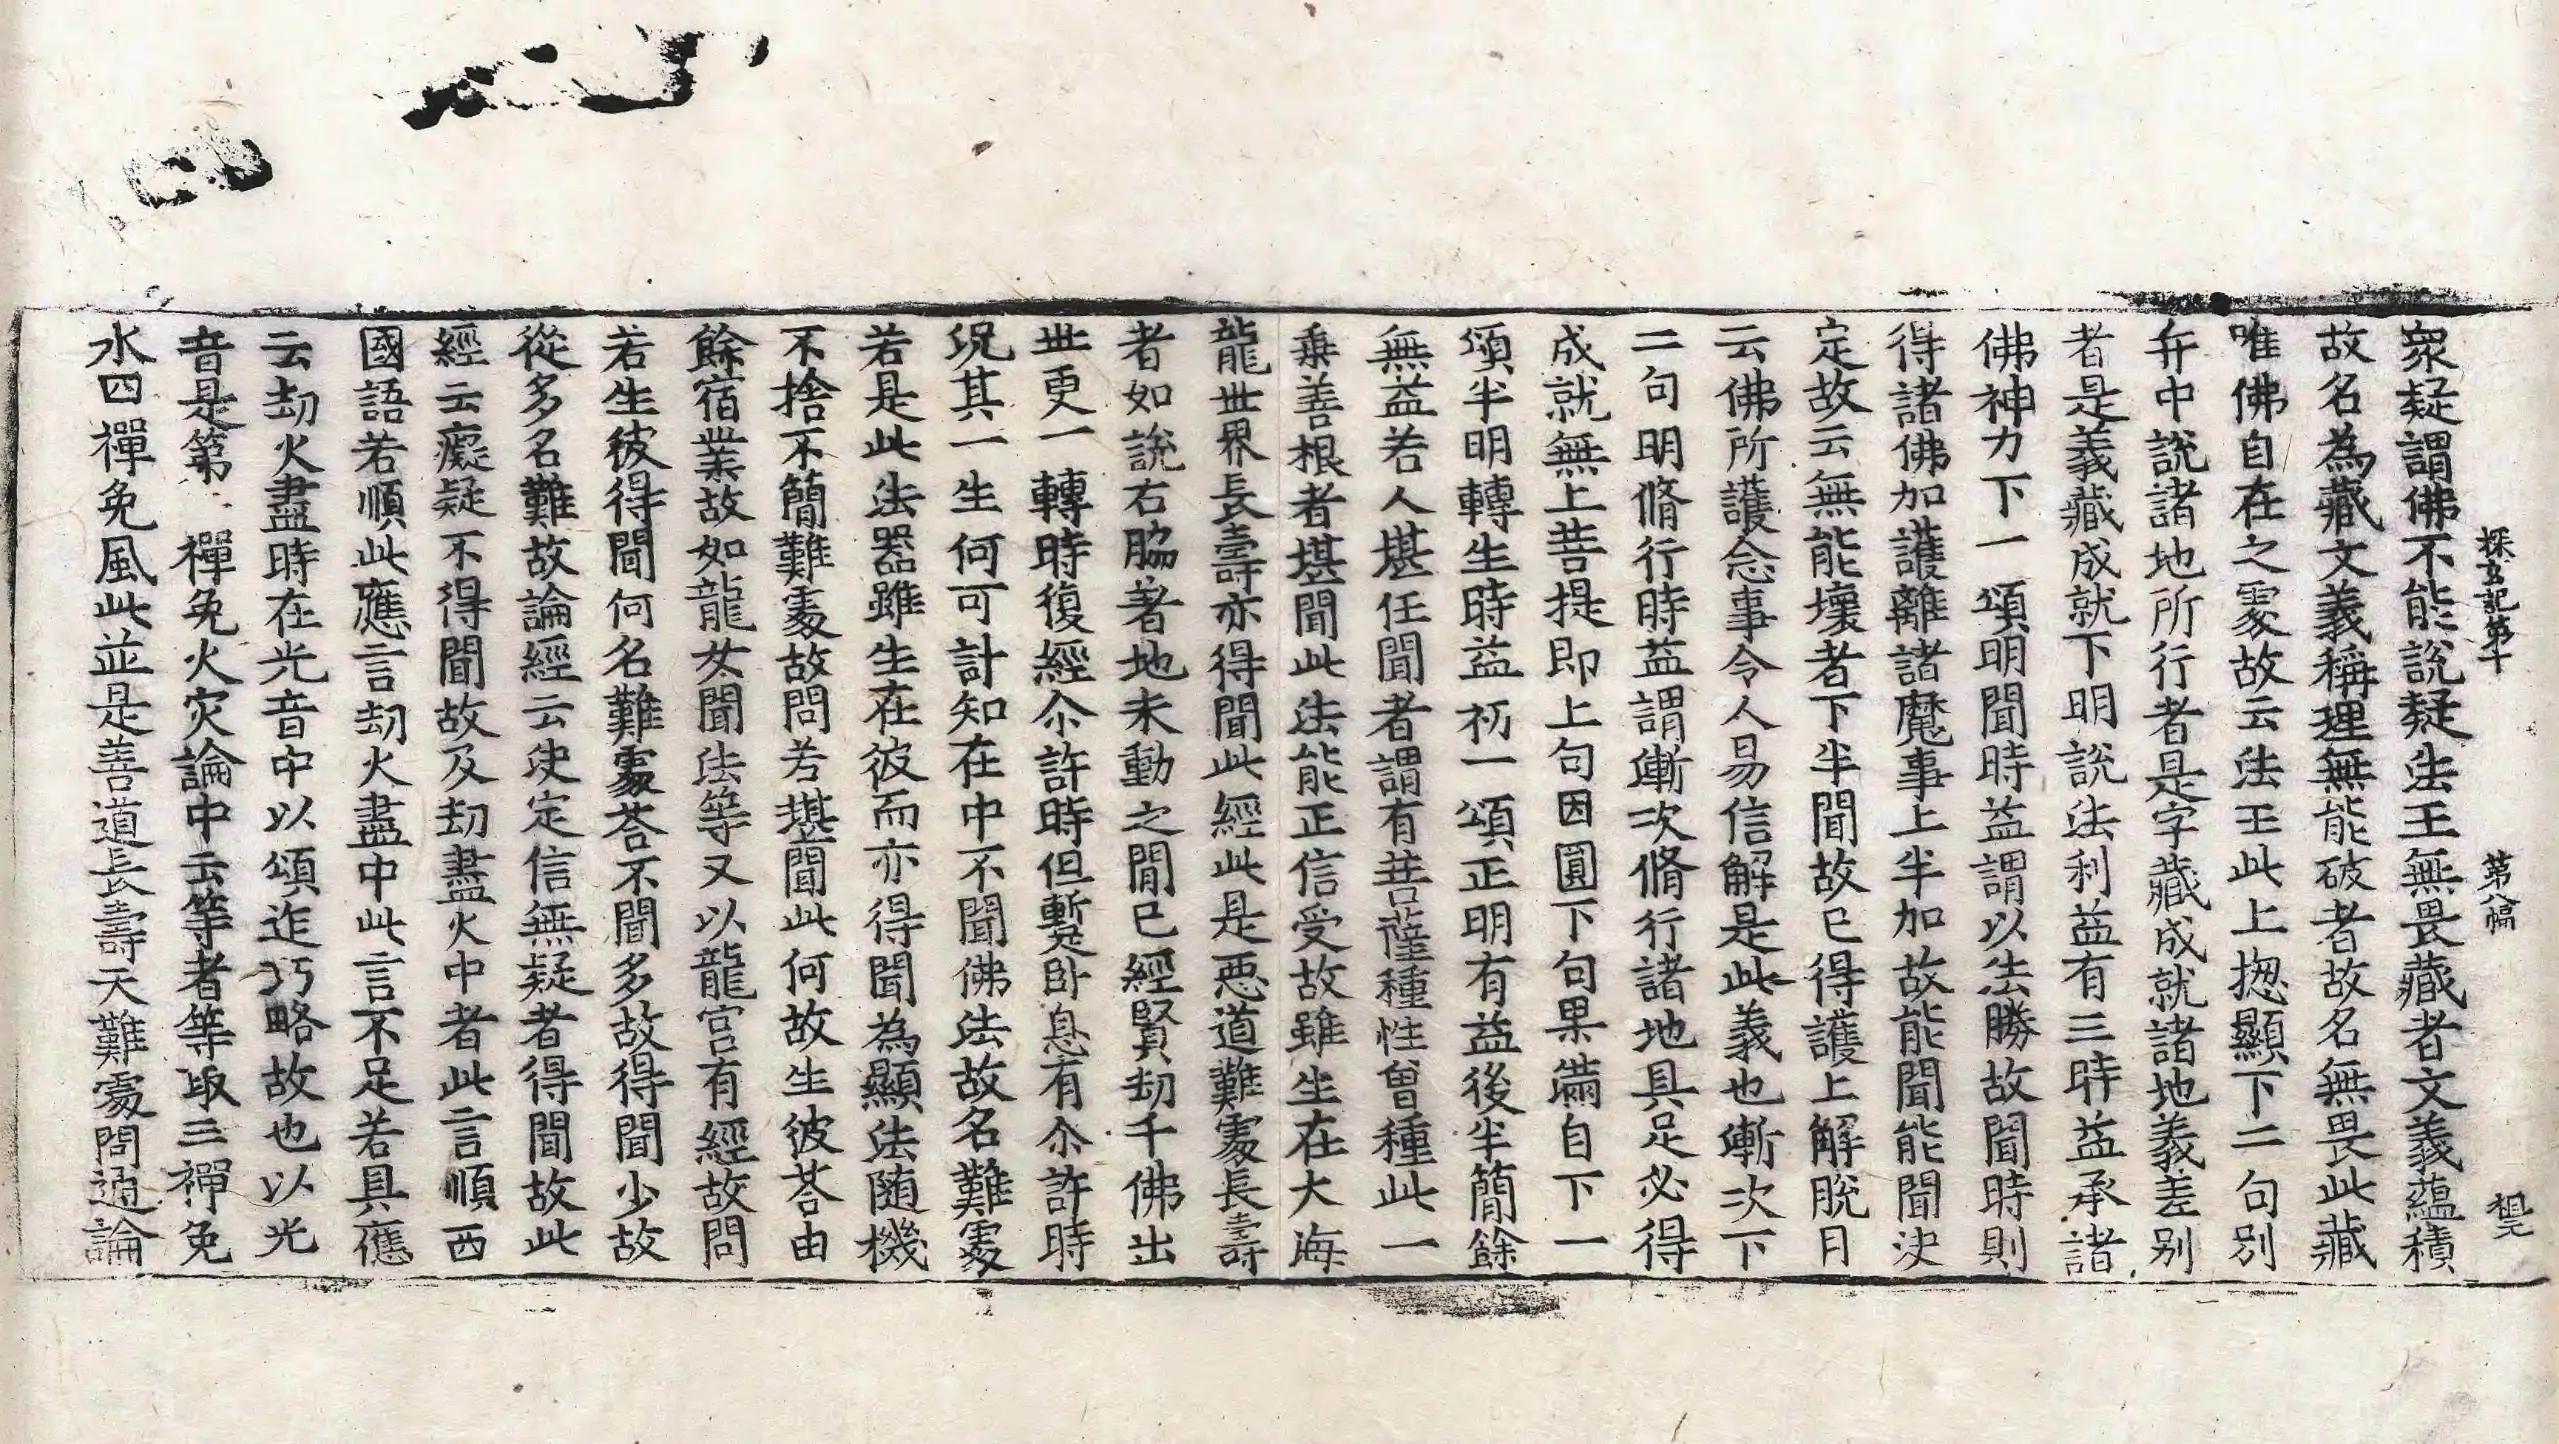 探玄記第十 第八幅 祖元
衆疑謂佛不能說疑法王無畏藏者文義蘊積
故名為藏文義稱理無能破者故名無畏此藏
唯佛自在之處故云法王此上揔顯下二句別
弁中說諸地所行者是字藏成就諸地義差別
者是義藏成就下明說法利益有三時益承諸
佛神力下一頌明聞時益謂以法勝故聞時則
得諸佛加護離諸魔事上半加故能聞能聞決
定故云無能壞者下半聞故已得護上解脫月
云佛所護念事令人易信解是此義也漸次下
二句明脩行時益謂漸次脩行諸地具足必得
成就無上菩提即上句因圓下句果滿自下一
頌半明轉生時益初一頌正明有益後半簡餘
無益若人堪任聞者謂有菩薩種性曾種此一
乘善根者堪聞此法能正信受故雖生在大海
龍世界長壽亦得聞此經此是惡道難處長壽
者如說右脇著地未動之間已經賢劫千佛出
世更一轉時復經尒許時但蹔卧息有尒許時
況其一生何可計知在中不聞佛法故名難處
若是此法器雖生在彼而亦得聞為顯法随機
不捨不簡難處故問若堪聞此何故生彼荅由
餘宿業故如龍女聞法等又以龍宮有經故問
若生彼得聞何名難處荅不聞多故得聞少故
從多名難故論經云決定信無疑者得聞故此
經云癡疑不得聞故及劫盡火中者此言順西
國語若順此應言劫火盡中此言不足若具應
云劫火盡時在光音中以頌迮巧略故也以光
音是第 禪免火灾論中云等者等取三禪免
水四禪免風此並是善道長壽天難處問通論